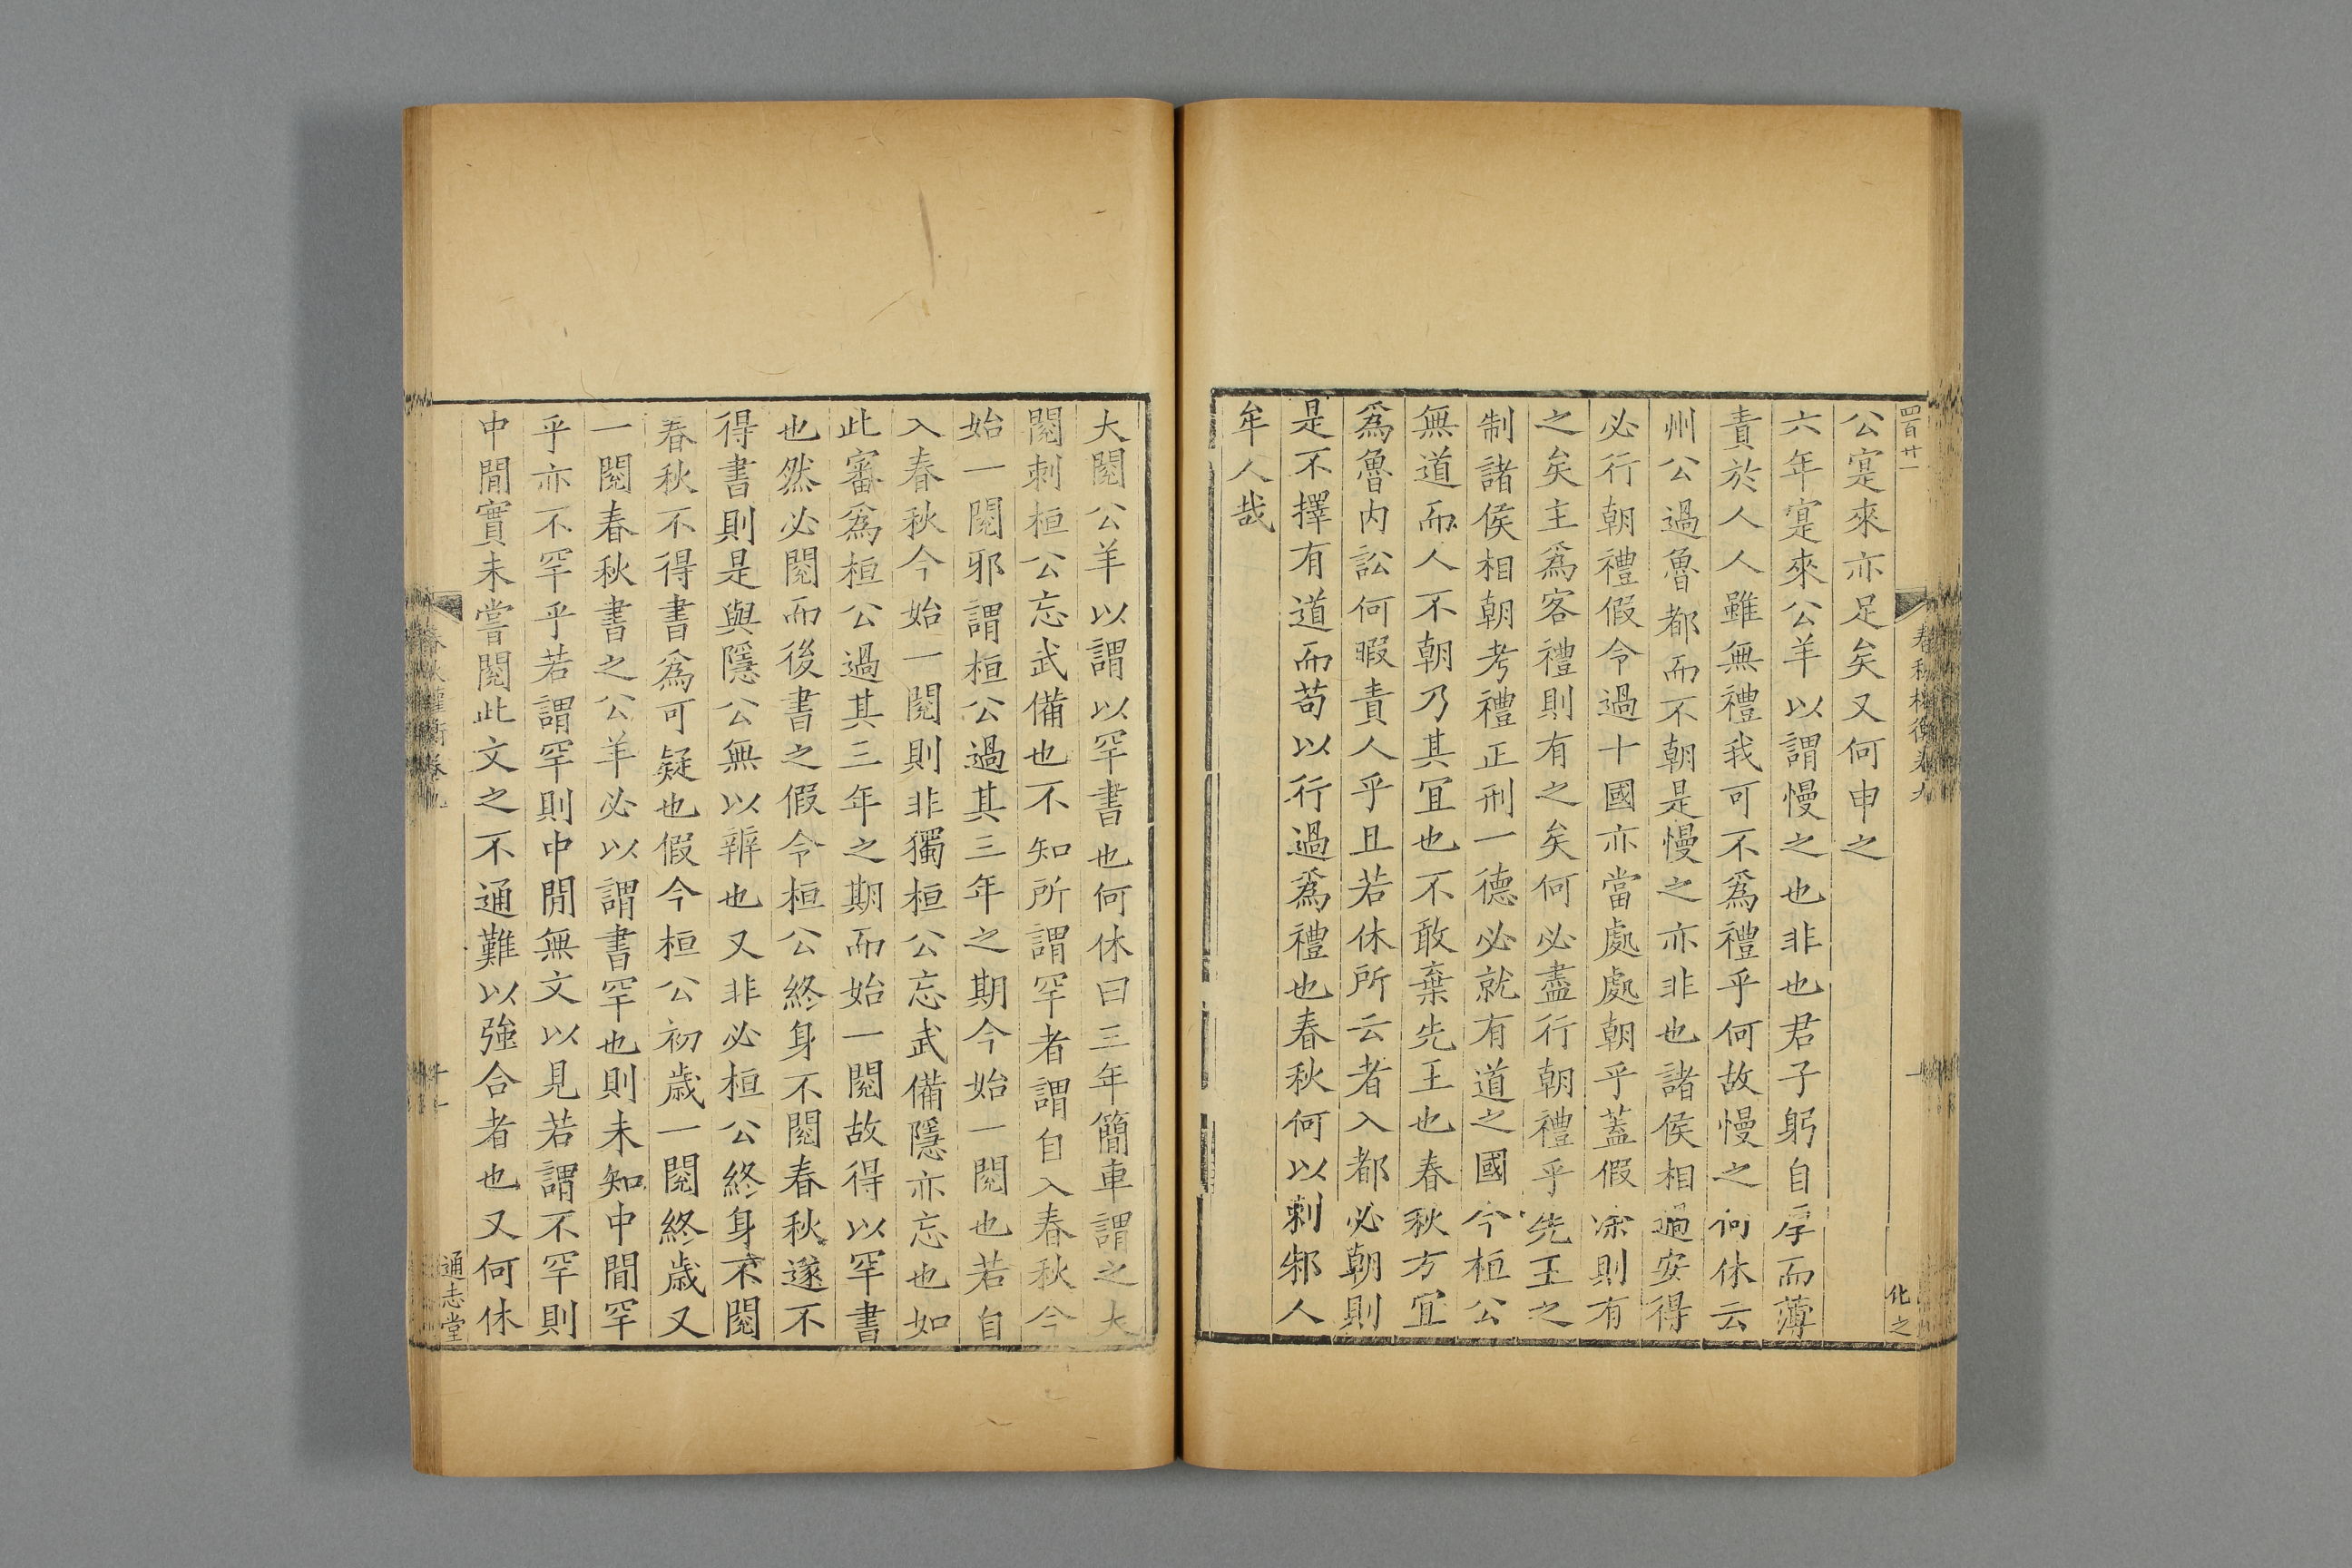 四百廿一
春秋權衡卷九
化之
公寔來亦足矣又何申之
六年寔來公羊以謂慢之也非也君子躬自厚而薄
責於人人雖無禮我可不爲禮乎何故慢之何休云
州公過魯都而不朝是慢之亦非也諸侯相過安得
必行朝禮假令過十國亦當處處朝乎蓋假涂則有
之矣主爲客禮則有之矣何必盡行朝禮乎先王之
制諸侯相朝考禮正刑一德必就有道之國今桓公
無道而人不朝乃其宜也不敢棄先王也春秋方宜
爲魯內訟何暇責人乎且若休所云者入都必朝則
是不擇有道而苟以行過爲禮也春秋何以刺邾人
牟人哉
大閱公羊以謂以罕書也何休曰三年簡車謂之大
閱刺桓公忘武備也不知所謂罕者謂自入春秋今
始一閱邪謂桓公過其三年之期今始一閱也若自
入春秋今始一閱則非獨桓公忘武備隱亦忘也如
此審爲桓公過其三年之期而始一閱故得以罕書
也然必閱而後書之假令桓公終身不閱春秋遂不
得書則是與隱公無以辨也又非必桓公終身不閱
春秋不得書爲可疑也假今桓公初歲一閱終歲又
一閱春秋書之公羊必以謂書罕也則未知中閒罕
乎亦不罕乎若謂罕則中閒無文以見若謂不罕則
中閒實未嘗閱此文之不通難以強合者也又何休
春秋權衡卷九
十一
通志堂